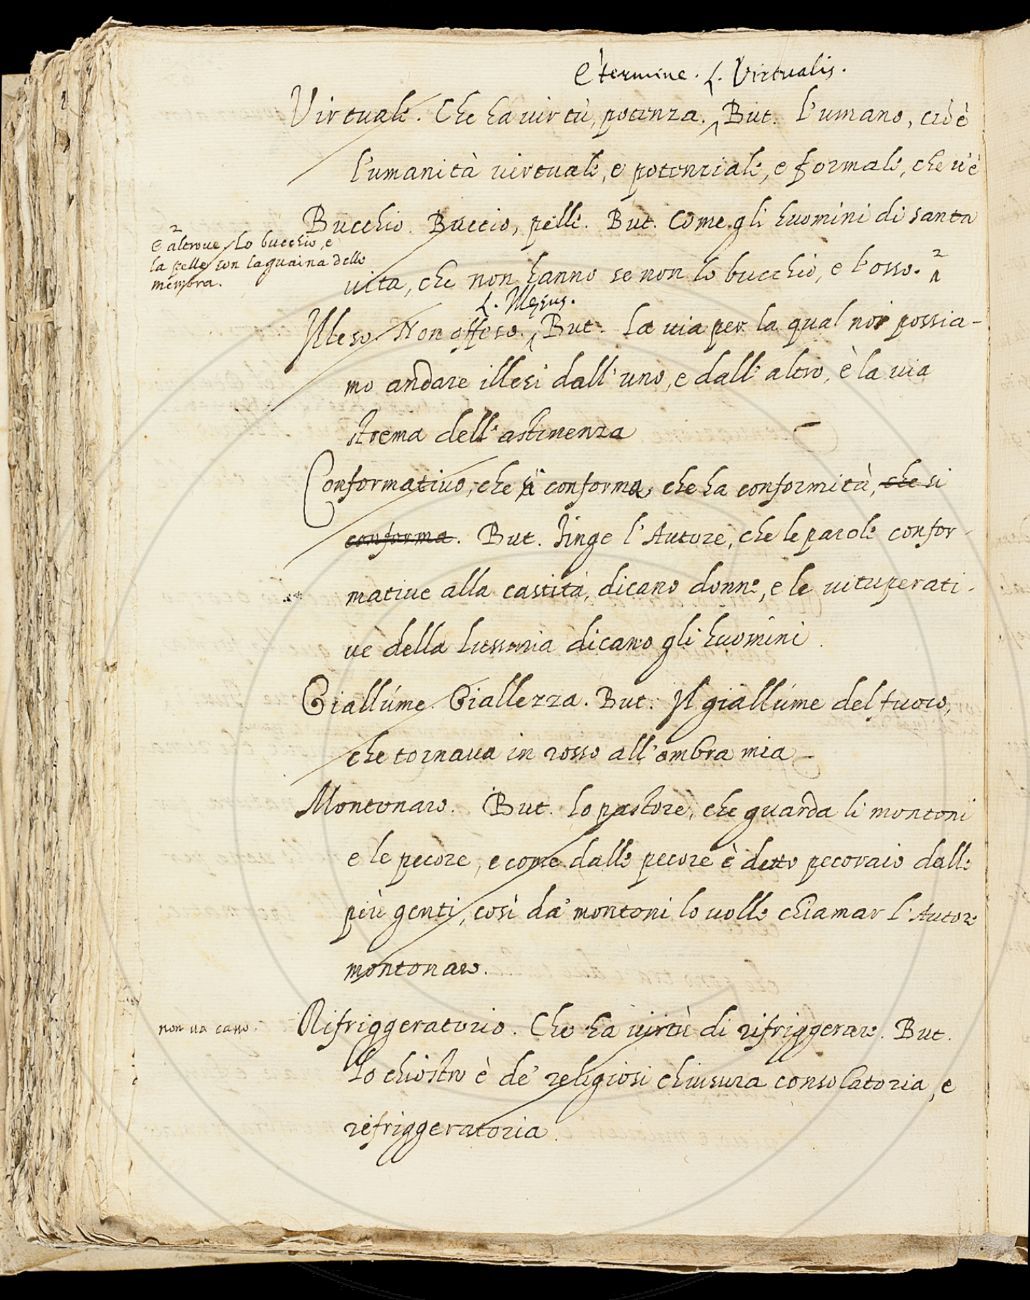 È termine. L. Virtualis.
Virtuale. Che ha virtù, potenza. But. L'umano, cioè
l'umanità virtuale, e potenziale, e formale, che v'è
Bucchio. Buccio, pelle. But. Come gli huomini di santa
2 e altrove, Lo bucchio, e
la pelle son la guaina delle
membra.
vita, che non hanno se non lo bucchio, e l'osso. 2
L. Illesus.
Illeso. Non offeso. But. La via per la qual noi possia-
mo andare illesi dall'uno, e dall'altro, è la via
strema dell'astinenza
Conformativo, che si conforma, che ha conformità, che si
conforma. But. Finge l'Autore, che le parole confor-
mative alla castità, dicano donne, e le vituperati-
ve della Lussuria dicano gli huomini.
Giallúme. Giallezza. But. Il giallúme del fuoco,
che tornava in rosso all'ombra mia
Montonaro. But. Lo pastore, che guarda li montoni
e le pecore, e come dalle pecore è detto pecoraio dalle
più genti, così da' montoni lo volle chiamar l'Autore
montonaro.
non va cavo. Rifriggeratorio. Che ha virtù di rifriggerare. But.
Lo chiostro è de' religiosi chiusura consolatoria, e
rifriggeratoria.